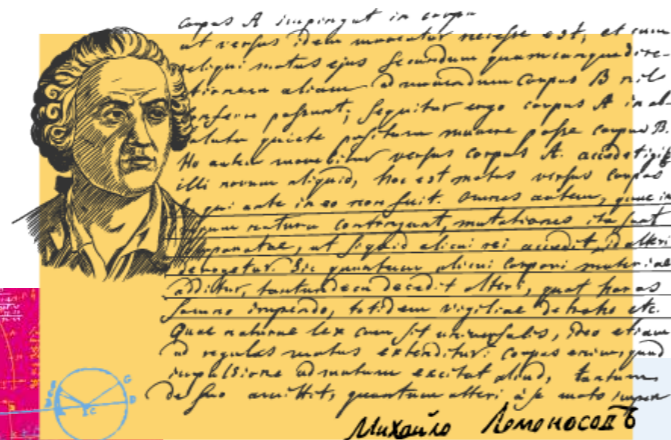 corpus A impingat in corpu
ut versus idem moveatur necesse est, et cum
reliqui motus ejus secundum quamcunque dire-
ctionem aliam ad movendum corpus B nil
conferre possunt, sequitur ergo corpus A in ab
soluta quiete positum movere posse corpus B.
Ho autem movebitur versus corpus A. accedet igit
illi novum aliquid, hoc est motus versus corpus
qui ante in eo non fuit. Omnes autem, quae in
rerum natura contingunt, mutationes ita sunt
comparatae, ut si quid alicui rei accedit, id alteri
derogetur. Sic quantum alicui corpori materiae
additur, tantundem decedit alteri, quot horas
somno impendo, totidem vigiliae detraho etc.
Quae naturae lex cum sit universalis, ideo etiam
ad regulas motus extenditur: corpus enim, quod
impulsione ad motum excitat aliud, tantum
de suo amittit, quantum alteri a se moto imper
Михайло Ломоносовъ
G
D
C